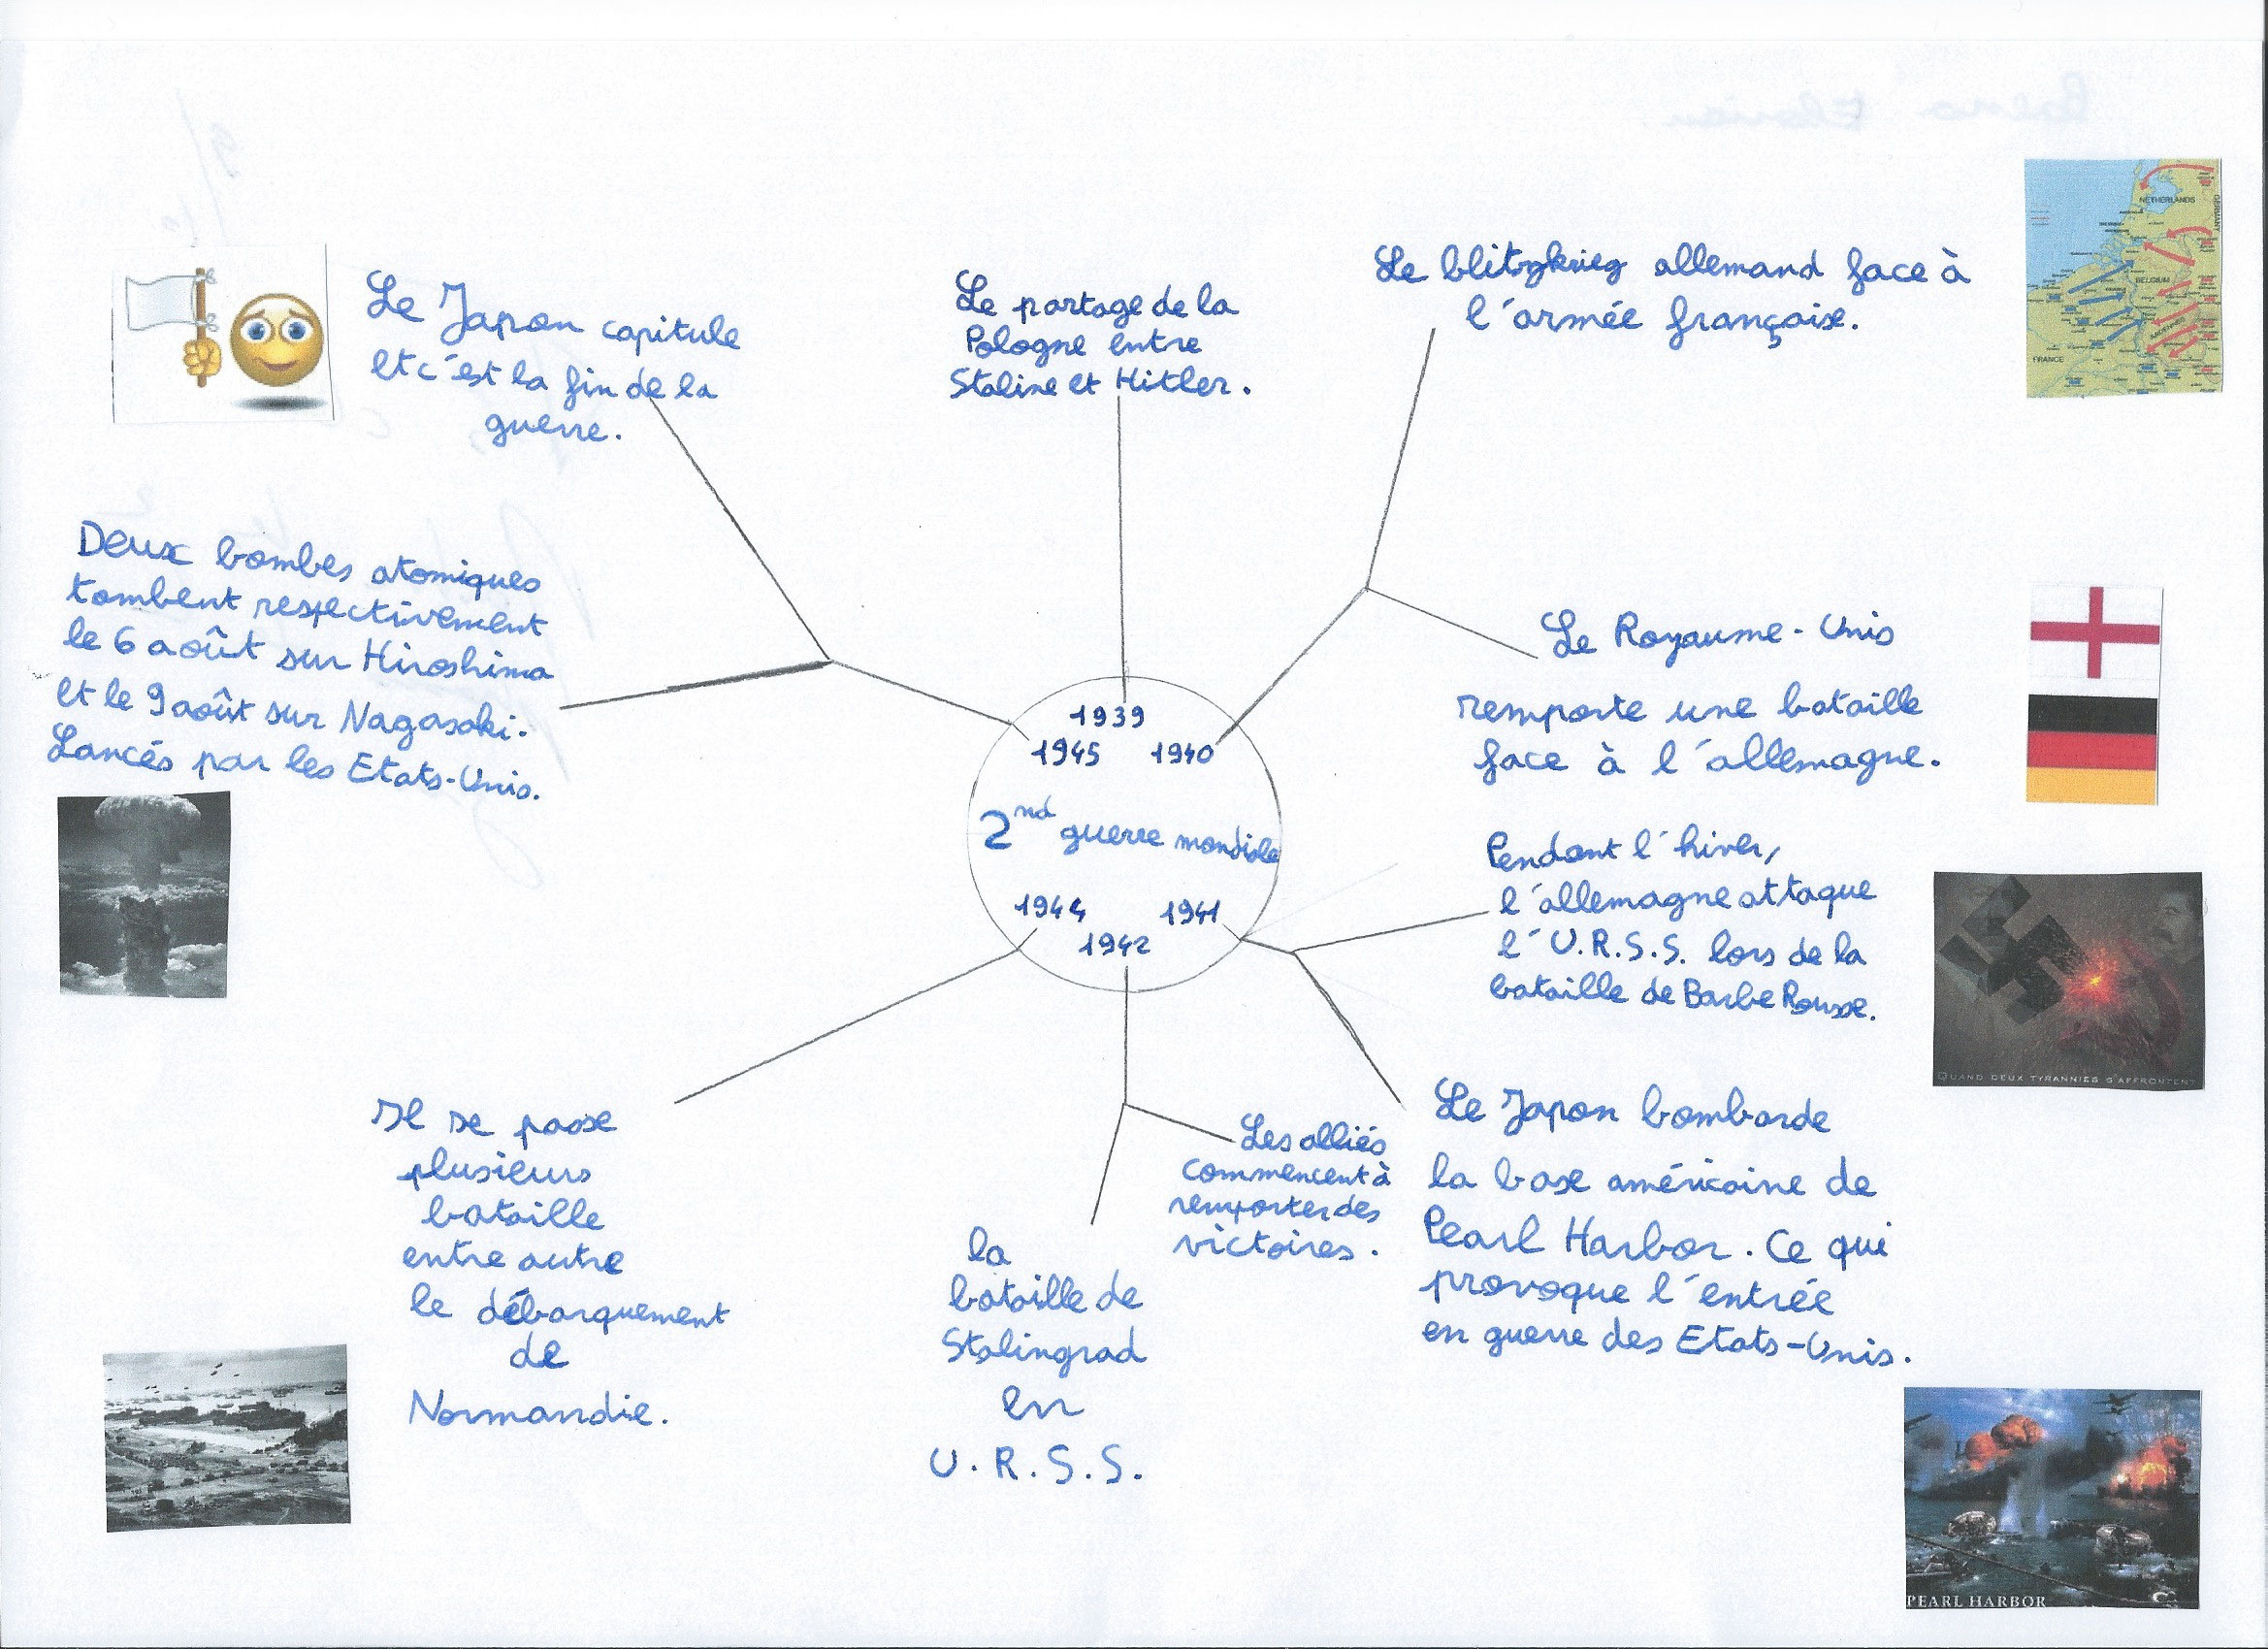 Le Japon capitule
et c'est la fin de la
guerre.
Le partage de la
Pologne entre
Staline et Hitler.
Le blitzkrieg allemand face à
l'armée française.
NETHERLANDS
GERMANY
BELGIUM
ARDENNES
FRANCE
Deux bombes atomiques
tombent respectivement
le 6 août sur Hiroshima
et le 9 août sur Nagasaki.
Lancés par les Etats-Unis.
Le Royaume-Unis
remporte une bataille
face à l'allemagne.
1939
1945 1940
2nd guerre mondiale
1944 1941
1942
Pendant l'hiver,
l'allemagne attaque
l'U.R.S.S. lors de la
bataille de Barbe Rousse.
QUAND DEUX TYRANNIES S'AFFRONTENT
Il se passe
plusieurs
bataille
entre autre
le débarquement
de
Normandie.
Les alliés
commencent à
remporter des
victoires.
la
bataille de
Stalingrad
en
U.R.S.S.
Le Japon bombarde
la base américaine de
Pearl Harbor. Ce qui
provoque l'entrée
en guerre des Etats-Unis.
PEARL HARBOR